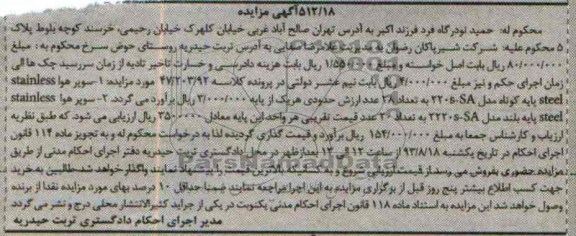 ۵۱۳/۱۸آگهی مزایده
محکوم له: حمید نودرگاه فرد فرزند اکبر به آدرس تهران صالح آباد غربی خیابان کلهرک خیابان رحیمی، خرسند کوچه بلوط پلاک
۵ محکوم علیه: شرکت شیر پاکان رضوان به مدیریت غلامرضا صفایی به آدرس تربت حیدریه روستای حوض سرخ محکوم به: مبلغ
۸۰/۰۰۰/۰۰۰ ریال بابت اصل خواسته و مبلغ ریال بابت هزینه دادرسی و خسارت تاخیر تادیه از زمان سررسید چک ها الی
زمان اجرای حکم و نیز مبلغ ۴/۰۰۰/۰۰۰ ریال بابت نیم عشر دولتی در پرونده کلاسه ۴۷/۲۰۳/۹۲ مورد مزایده: ۱-سوپر هوا stainless
steel پایه کوتاه مدل ۲۲۰s-SA به تعداد ۲۸ عدد ارزش حدودی هریک از پایه ۳/۰۰۰/۰۰۰ ریال برآورد می گردد. ۲-سوپر هوا stainless
steel پایه بلند مدل ۲۲۲۰s-SA به تعداد ۲۰ عدد قیمت تقریبی هر واحد این پایه معادل ۳۵۰۰۰۰۰ ریال ارزیابی می شود، که طبق نظریه
ارزیاب و کارشناس جمعا به مبلغ ۱۵۴/۰۰۰/۰۰۰ ریال برآورد و قیمت گذاری گردیده لذا به درخواست محکوم له و به تجویز ماده ۱۱۴ قانون
اجرای احکام در تاریخ یکشنبه ۹۳/۸/۱۸ از ساعت ۱۲ الی ۱۳ بعدازظهر در محل دادگستری تربت حیدریه دفتر اجرای احکام مدنی از طریق
مزایده حضوری بفروش می رسد از قیمت ارزیابی شروع و به کسانیکه بالاترین قیمت را پیشنهاد نمایند واگذار خواهد شد طالبین به خرید
جهت کسب اطلاع بیشتر پنج روز قبل از برگزاری مزایده به این اجرا مراجعه نمایند ضمنا حداقل ۱۰ درصد بهای مورد مزایده نقدا از برنده
وصول خواهد شد این مزایده به استناد ماده ۱۱۸ قانون اجرای احکام مدنی یکنوبت در یکی از جراید کثیرالانتشار محلی درج و نشر می گردد
مدیر اجرای احکام دادگستری تربت حیدریه
ParsNamadData